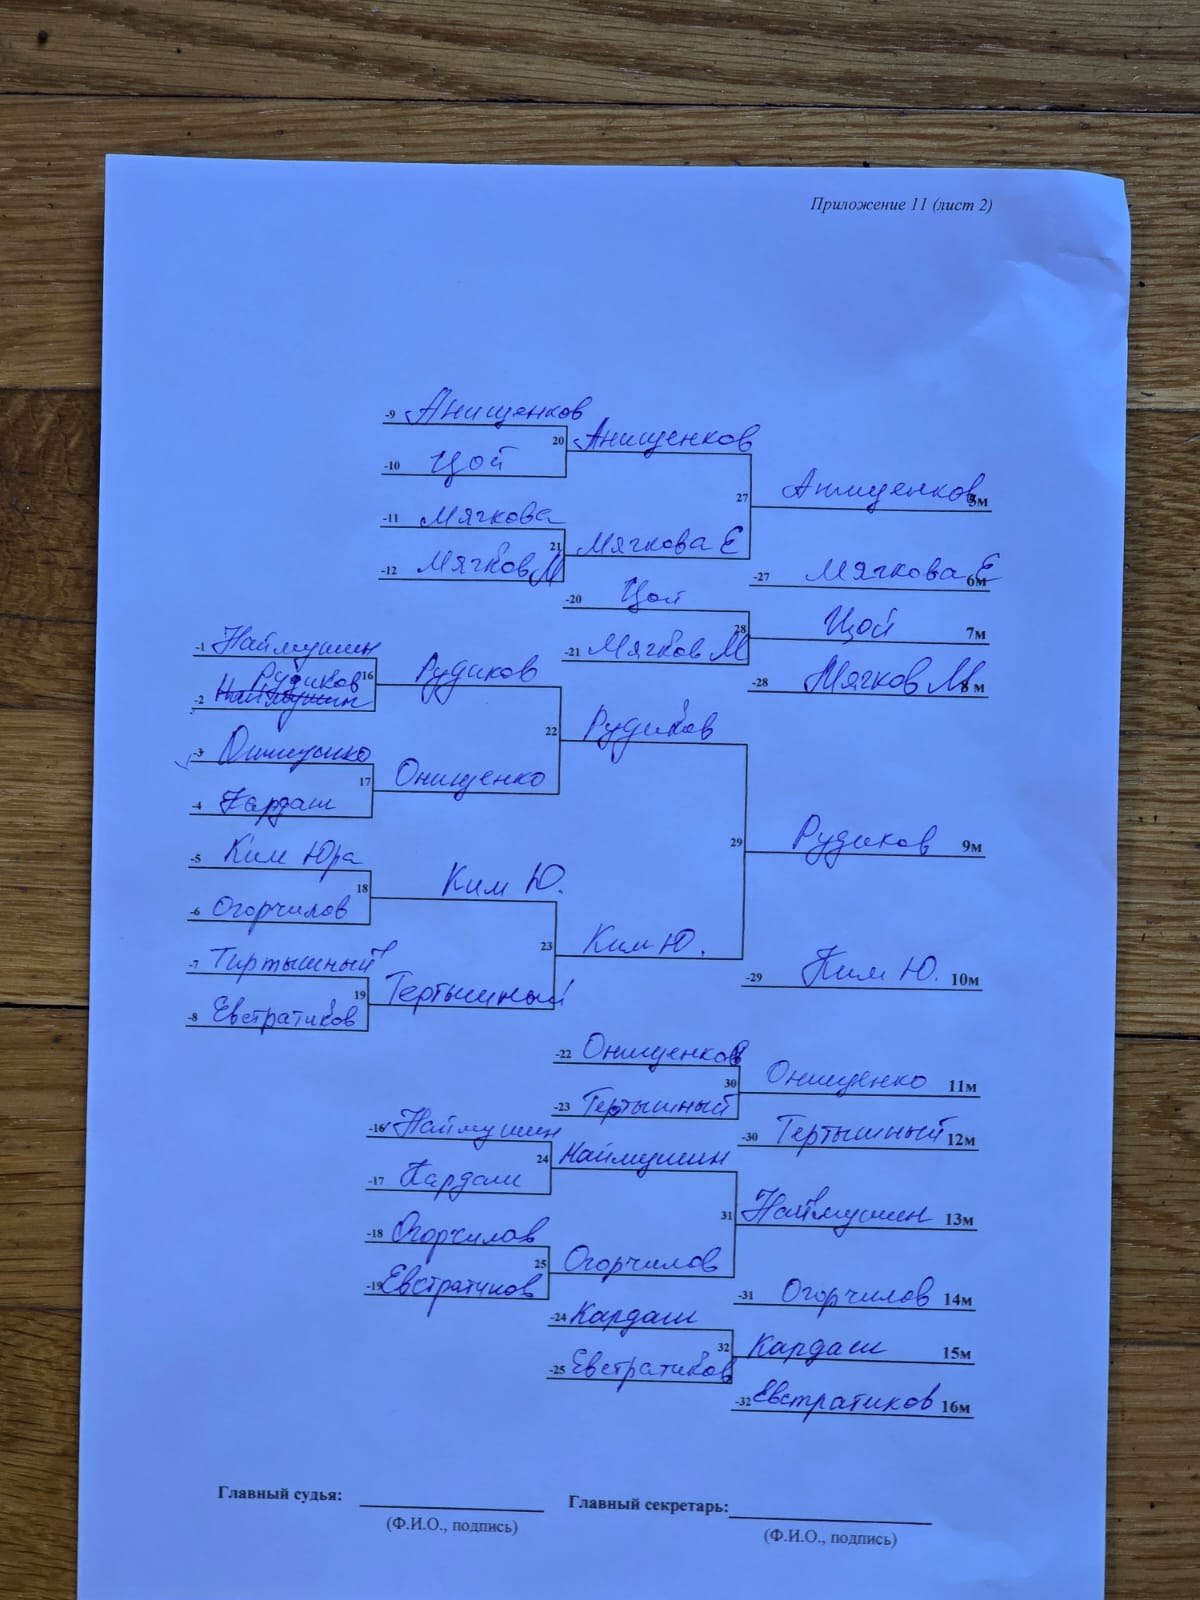 Приложение 11 (лист 2)
-9 Анищенков
20 Анищенков
-10 Цой
27 Анищенков 5м
-11 Мягкова
21 Мягкова Е
-12 Мягков М
-27 Мягкова Е 6м
-20 Цой
28 Цой 7м
-21 Мягков М
-28 Мягков М 8 м
-1 Наймушин
16 Рудиков
-2 Рудиков
Наймушин
22 Рудиков
-3
17 Онищенко
-4 Кардаш
29 Рудиков 9м
-5 Ким Юра
18 Ким Ю.
-6 Огорчилов
23 Ким Ю.
-7 Тиртышный
19 Тертышный
-8 Евстратиков
-29 Ким Ю. 10м
-22 Онищенков
30 Онищенко 11м
-23 Тертышный
-30 Тертышный 12м
-16 Наймушин
24 Наймушин
-17 Кардаш
31 Наймушин 13м
-18 Огорчилов
25 Огорчилов
-19 Евстратиков
-31 Огорчилов 14м
-24 Кардаш
32 Кардаш 15м
-25 Евстратиков
-32 Евстратиков 16м
Главный судья:
Главный секретарь:
(Ф.И.О., подпись)
(Ф.И.О., подпись)